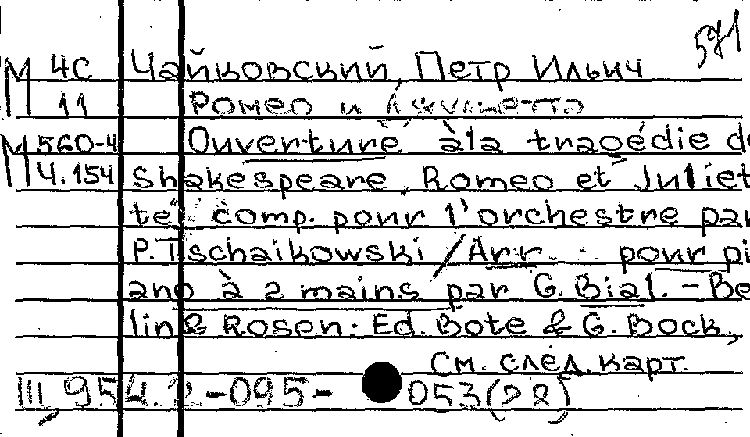 571
М 4С Чайковский, Петр Ильич
11 Ромео и Джульетта
М 560-4 Ouverture à la tragédie de
Ч.154 Shakespeare, Romeo et Juliet
te comp. pour l'orchestre par
P. Tschaikowski / Arr. pour pi
ano à 2 mains par G. Bial. - Be
lin & Rosen: Ed. Bote & G. Bock,
См. след. карт.
Ш 954.2-095- 053(28)